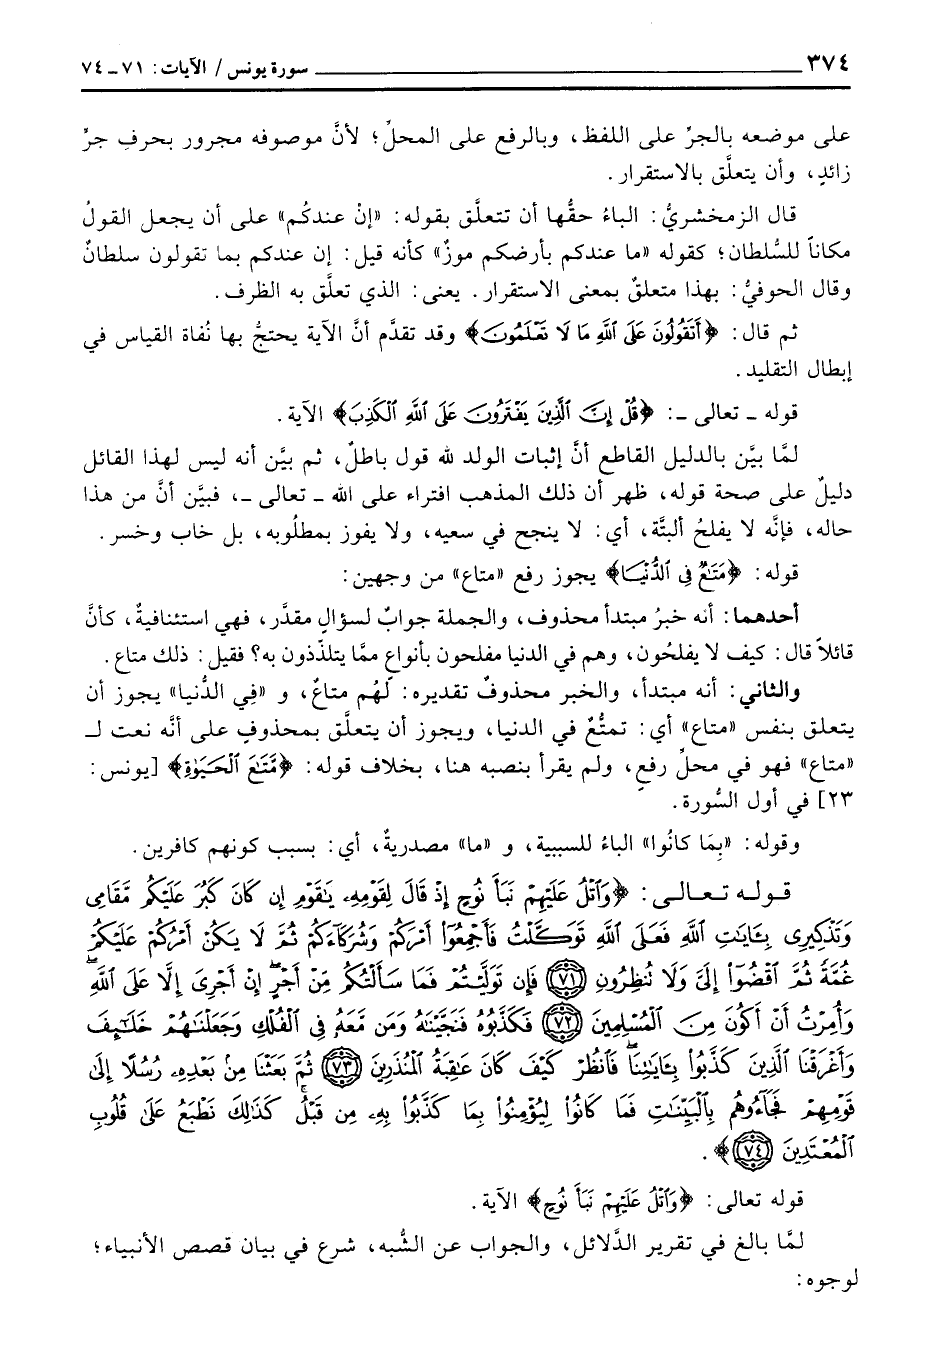 ٣٧٤ سورة يونس / الآيات: ٧١ - ٧٤
على موضعه بالجرِّ على اللفظ، وبالرفع على المحلِّ؛ لأنَّ موصوفه مجرور بحرفِ جرٍّ
زائدٍ، وأن يتعلَّق بالاستقرار.
قال الزمخشريُّ: الباءُ حقُّها أن تتعلَّق بقوله: «إنْ عندكُم» على أن يجعل القولُ
مكاناً للسُّلطان؛ كقوله «ما عندكم بأرضكم موزٌ» كأنه قيل: إن عندكم بما تقولون سلطانٌ
وقال الحوفيُّ: بهذا متعلقٌ بمعنى الاستقرار. يعنى: الذي تعلَّق به الظرف.
ثم قال: ﴿أَتَقُولُونَ عَلَى ٱللَّهِ مَا لَا تَعْلَمُونَ﴾ وقد تقدَّم أنَّ الآية يحتجُّ بها نُفاة القياس في
إبطال التقليد.
قوله - تعالى -: ﴿قُلْ إِنَّ ٱلَّذِينَ يَفْتَرُونَ عَلَى ٱللَّهِ ٱلْكَذِبَ﴾ الآية.
لمَّا بيَّن بالدليل القاطع أنَّ إثبات الولد لله قول باطلٌ، ثم بيَّن أنه ليس لهذا القائل
دليلٌ على صحة قوله، ظهر أن ذلك المذهب افتراء على الله - تعالى -، فبيَّن أنَّ من هذا
حاله، فإنَّه لا يفلحُ ألبتَّة، أي: لا ينجح في سعيه، ولا يفوز بمطلُوبه، بل خاب وخسر.
قوله: ﴿مَتَٰعٌ فِى ٱلدُّنْيَا﴾ يجوز رفع «متاع» من وجهين:
أحدهما: أنه خبرُ مبتدأ محذوف، والجملة جوابٌ لسؤالٍ مقدَّر، فهي استئنافيةٌ، كأنَّ
قائلاً قال: كيف لا يفلحُون، وهم في الدنيا مفلحون بأنواعٍ ممَّا يتلذّذون به؟ فقيل: ذلك متاع.
والثاني: أنه مبتدأ، والخبر محذوفٌ تقديره: لهُم متاعٌ، و «فِي الدُّنيا» يجوز أن
يتعلق بنفس «متاع» أي: تمتُّعٌ في الدنيا، ويجوز أن يتعلَّق بمحذوفٍ على أنَّه نعت لـ
«متاع» فهو في محلِّ رفعٍ، ولم يقرأ بنصبه هنا، بخلاف قوله: ﴿مَّتَٰعَ ٱلْحَيَوٰةِ﴾ [يونس:
٢٣] في أول السُّورة.
وقوله: «بِمَا كَانُوا» الباءُ للسببية، و «ما» مصدريةٌ، أي: بسبب كونهم كافرين.
قوله تعالى: ﴿وَٱتْلُ عَلَيْهِمْ نَبَأَ نُوحٍ إِذْ قَالَ لِقَوْمِهِۦ يَٰقَوْمِ إِن كَانَ كَبُرَ عَلَيْكُم مَّقَامِى
وَتَذْكِيرِى بِـَٔايَٰتِ ٱللَّهِ فَعَلَى ٱللَّهِ تَوَكَّلْتُ فَأَجْمِعُوٓا۟ أَمْرَكُمْ وَشُرَكَآءَكُمْ ثُمَّ لَا يَكُنْ أَمْرُكُمْ عَلَيْكُمْ
غُمَّةً ثُمَّ ٱقْضُوٓا۟ إِلَىَّ وَلَا تُنظِرُونِ ٧١ فَإِن تَوَلَّيْتُمْ فَمَا سَأَلْتُكُم مِّنْ أَجْرٍ إِنْ أَجْرِىَ إِلَّا عَلَى ٱللَّهِ
وَأُمِرْتُ أَنْ أَكُونَ مِنَ ٱلْمُسْلِمِينَ ٧٢ فَكَذَّبُوهُ فَنَجَّيْنَٰهُ وَمَن مَّعَهُۥ فِى ٱلْفُلْكِ وَجَعَلْنَٰهُمْ خَلَٰٓئِفَ
وَأَغْرَقْنَا ٱلَّذِينَ كَذَّبُوا۟ بِـَٔايَٰتِنَا فَٱنظُرْ كَيْفَ كَانَ عَٰقِبَةُ ٱلْمُنذَرِينَ ٧٣ ثُمَّ بَعَثْنَا مِنۢ بَعْدِهِۦ رُسُلًا إِلَىٰ
قَوْمِهِمْ فَجَآءُوهُم بِٱلْبَيِّنَٰتِ فَمَا كَانُوا۟ لِيُؤْمِنُوا۟ بِمَا كَذَّبُوا۟ بِهِۦ مِن قَبْلُ كَذَٰلِكَ نَطْبَعُ عَلَىٰ قُلُوبِ
ٱلْمُعْتَدِينَ ٧٤﴾.
قوله تعالى: ﴿وَٱتْلُ عَلَيْهِمْ نَبَأَ نُوحٍ﴾ الآية.
لمَّا بالغ في تقرير الدَّلائل، والجواب عن الشُّبه، شرع في بيان قصص الأنبياء؛
لوجوه: